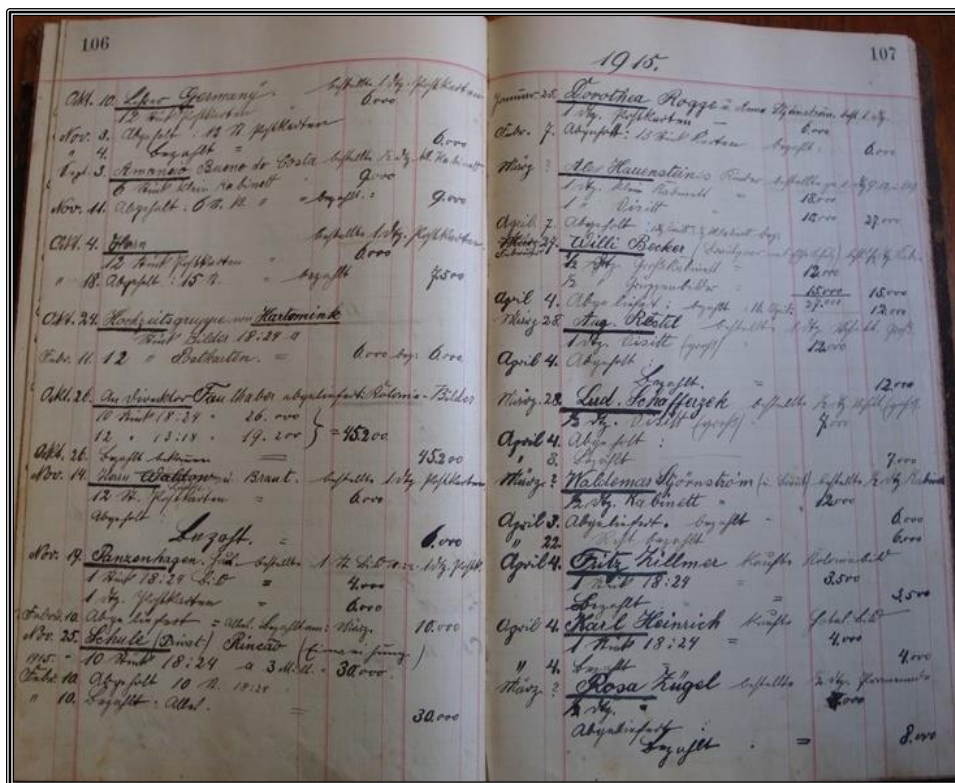 106
Okt. 10. Lehrer Germany bestellte 1 dtz. Postkarten
12 Stück Postkarten 6.000
Nov. 3. Abgeholt: 12 St. Postkarten
" 4. Bezahlt = 6.000
Sept. 3. Amancio Bueno do Costa bestellte ½ dtz. kl. Kabinett
6 Stück klein Kabinett " 9.000
Nov. 11. Abgeholt: 6 St. " bezahlt: 9.000
Okt. 4. bestellte 1 dtz. Postkarten
12 Stück Postkarten 6.000
" 18. Abgeholt: 15 St. " bezahlt 7.500
Okt. 24. Hochzeitsgruppe von Hartomink
Stück Bilder 18:24 a
Febr. 11. 12 " Postkarten. = 6.000 bez. 6.000
Okt. 26. An Direktor Faulhaber abgeliefert: Kolonie-Bilder
10 Stück 18:24 " 26.000
12 " 13:18 " 19.200 } = 45.200.
Okt. 26. Bezahlt bekommen 45.200
Nov. 14. Herrn Waldow u. Braut. bestellte 1 dtz. Postkarten
12 St. Postkarten = 6.000
Abgeholt:
Bezahlt. = 6.000
Nov. 19. Panzenhagen. bestellte 1 St. Bild 1 dtz. Postk.
1 Stück 18:24 Bild = 4.000
1 dtz. Postkarten " 6.000
Febr. 10. Abgeliefert = Alles. Bezahlt am: März. 10.000
Nov. 25. Schule (Privat) Rincão (Einweihung.)
1915. " 10 Stück 18:24 a 3 M. 30.000.
Febr. 10. Abgeholt 10 St. 18:24
" 10. Bezahlt: Alles. = 30.000
107
1915.
Januar 25. Dorothea Rogge u. Anna Stjörnström. best. 1 dtz.
1 dtz. Postkarten = 6.000
Febr. 7. Abgeholt: 15 Stück Karten bezahlt. 6.000
März ? Alex Hauensteins Kinder bestellten
1 dtz. klein Kabinett " 18.000
1 " Visitt " 10.000 27.000
April 7. Abgeholt:
März 27. Willi Becker
½ dtz. Großkabinett = 12.000
½ " Gruppenbilder " 15.000 15.000
April 4. Abgeliefert: bezahlt 27.000 12.000
März 28. Aug. Röstel bestellte 1 dtz. Visitt groß
1 dtz. Visitt (groß) " 12.000
April 4. Abgeholt:
Bezahlt. = 12.000
März. 28. Lud. Schafferzek bestellte ½ dtz Visitt (groß)
½ dtz. Visitt (groß) 7.000
April 4. Abgeholt:
" 8. Bezahlt 7.000
März ? Waldemar Stjörnström (u. Braut) bestellte ½ dtz Kabinett
½ dtz Kabinett " 12.000
April 3. Abgeliefert. bezahlt - 6.000
" 22. Rest bezahlt 6.000
April 4. Fritz Zillmer kaufte Koloniebild
1 Stück 18:24 = 3.500
Bezahlt = 3.500
April 4. Karl Heinrich kaufte
1 Stück 18:24 = 4.000
" 4. Bezahlt = 4.000
März ? Rosa Zügel bestellte ½ dtz. Promenade
½ dtz. "
Abgeliefert:
Bezahlt. = 8.000